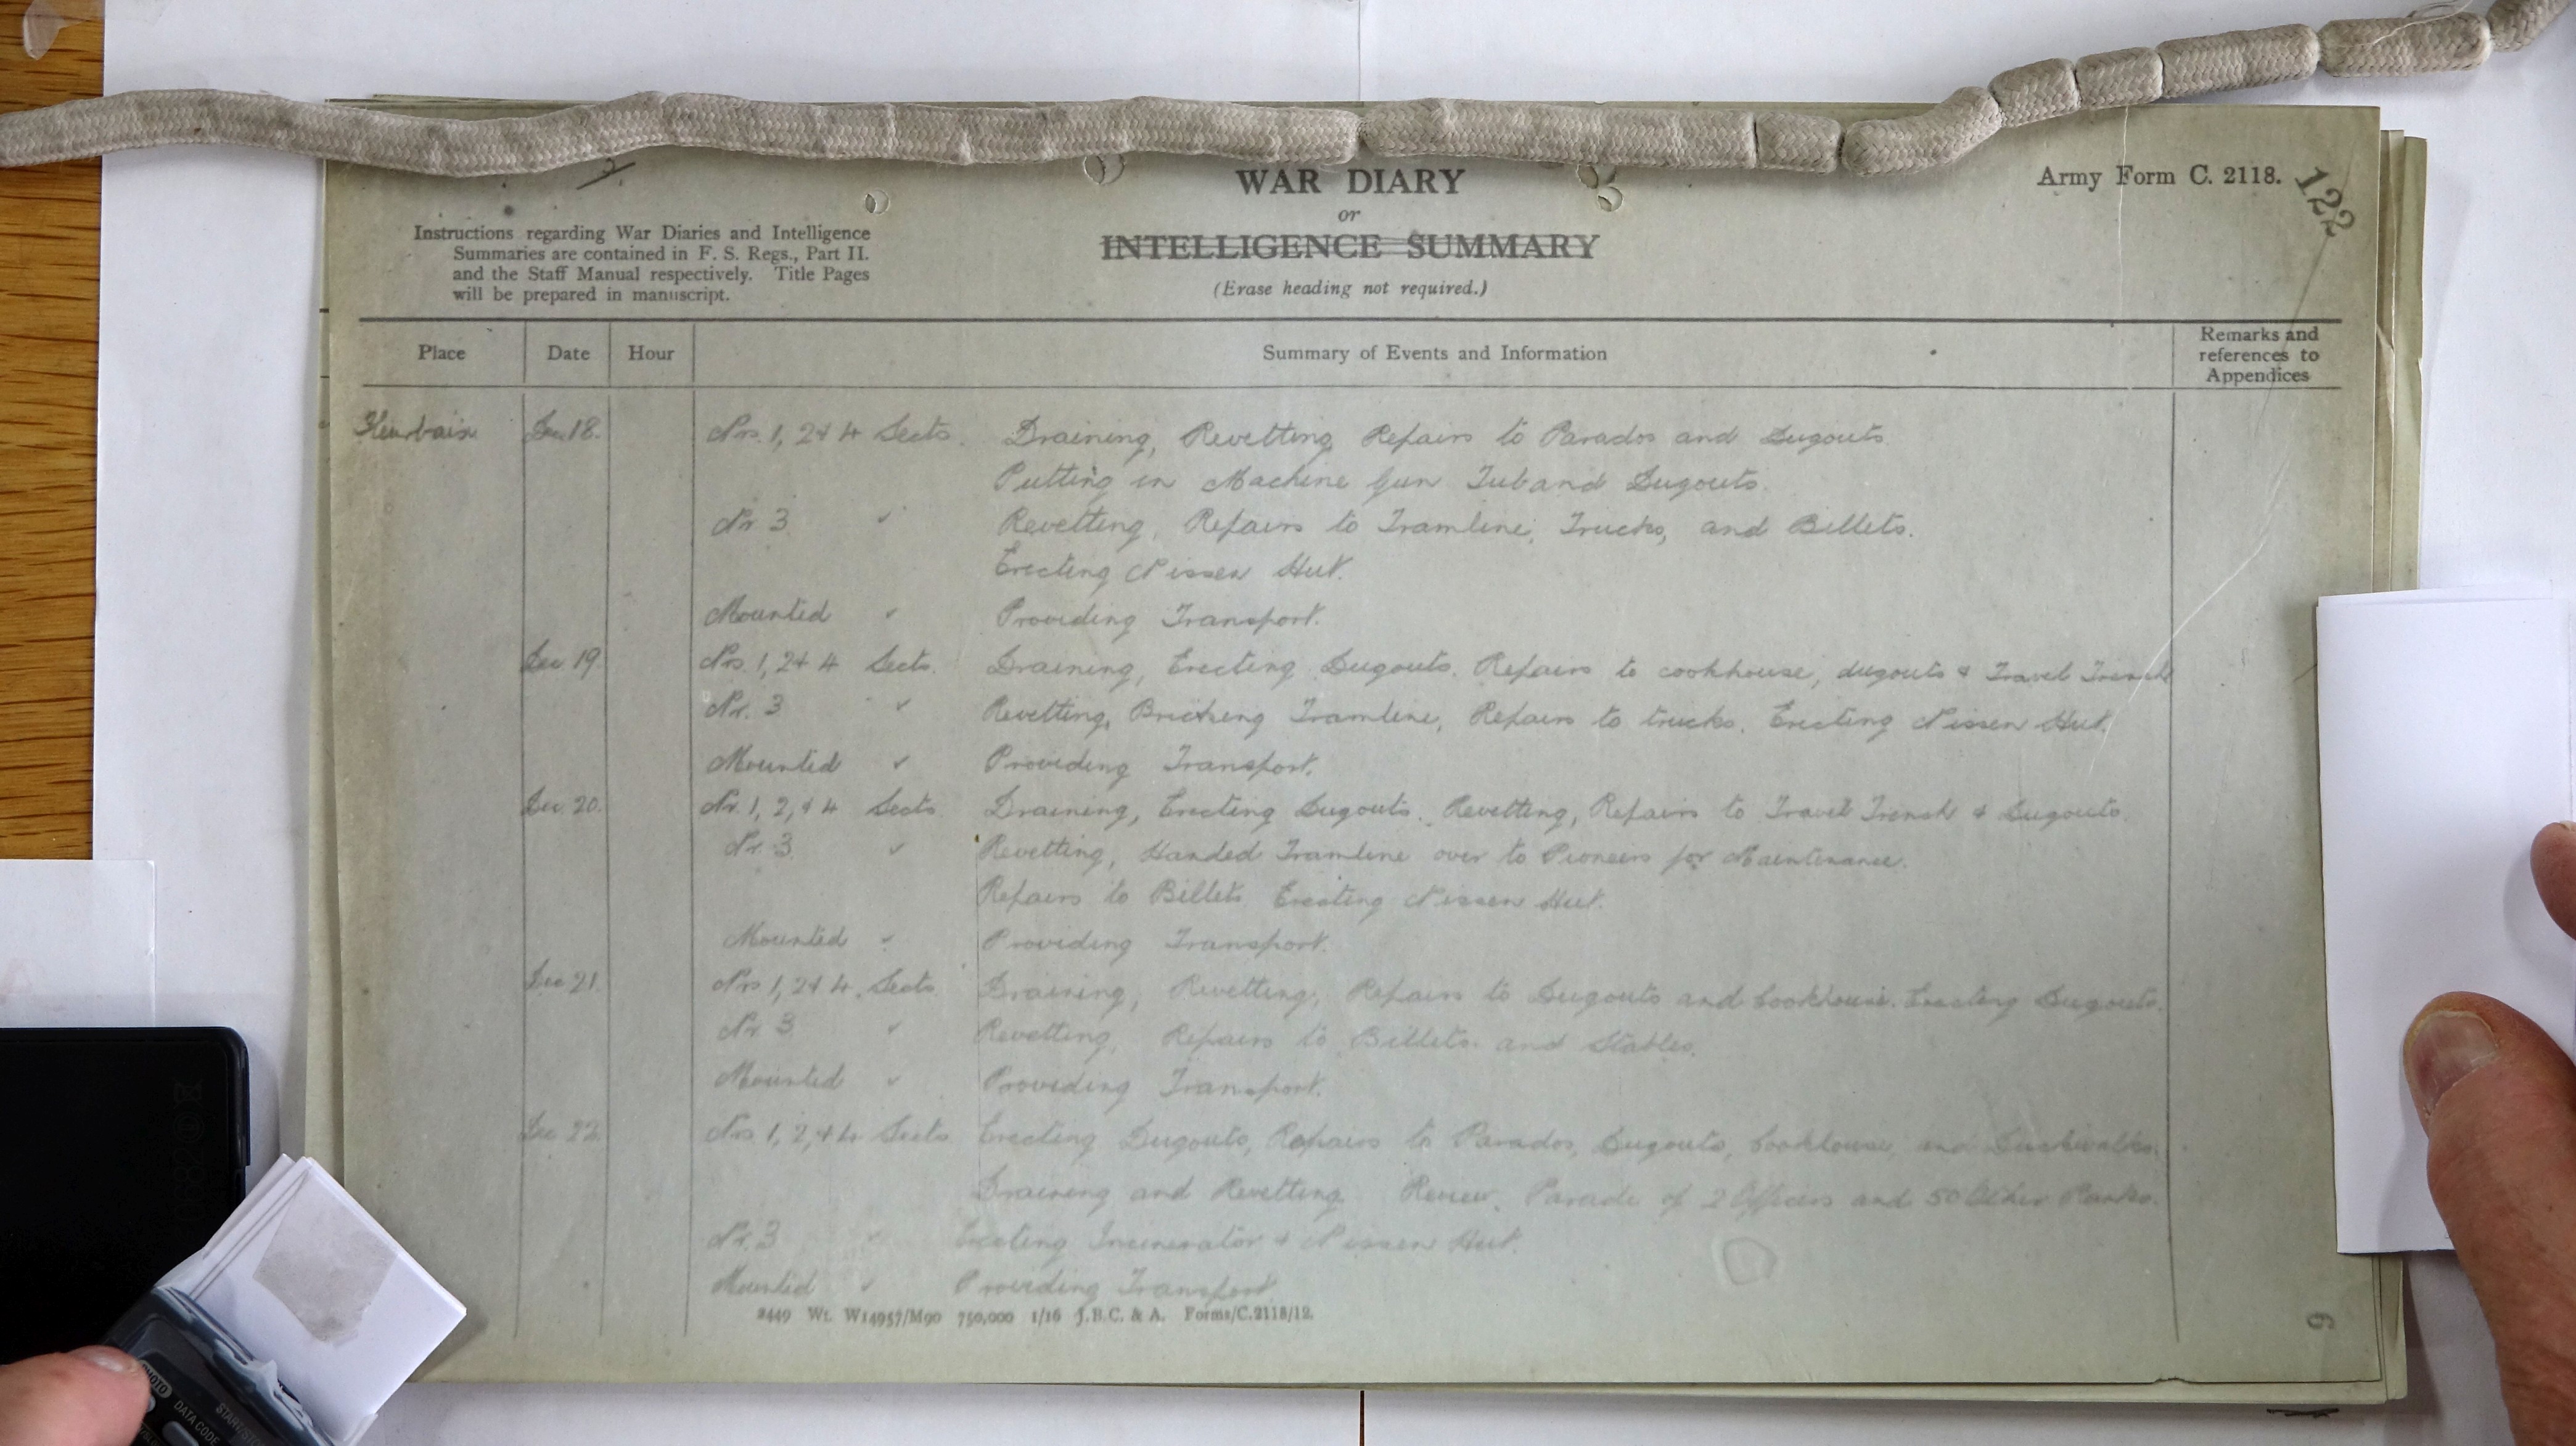 WAR DIARY
or
INTELLIGENCE SUMMARY
(Erase heading not required.)
Army Form C. 2118.
122
Instructions regarding War Diaries and Intelligence
Summaries are contained in F. S. Regs., Part II.
and the Staff Manual respectively. Title Pages
will be prepared in manuscript.
Place Date Hour Summary of Events and Information Remarks and
references to
Appendices
Fleurbaix Dec 18. Nos. 1, 2 & 4 Sects. Draining, Revetting, Repairs to Parados and Dugouts.
Putting in Machine Gun Tub and Dugouts.
Nr 3 " Revetting, Repairs to Tramline, Trucks, and Billets.
Erecting Nissen Hut.
Mounted " Providing Transport.
Dec 19. Nos. 1, 2 & 4 Sects. Draining, Erecting Dugouts. Repairs to cookhouse, dugouts & Travel Trench
Nr. 3 " Revetting, Bricking Tramline, Repairs to trucks. Erecting Nissen Hut.
Mounted " Providing Transport.
Dec. 20. Nr. 1, 2, & 4 Sects. Draining, Erecting Dugouts. Revetting, Repairs to Travel Trench & Dugouts.
Nr. 3 " Revetting, Handed Tramline over to Pioneers for Maintenance.
Repairs to Billets. Erecting Nissen Hut.
Mounted " Providing Transport.
Dec 21. Nos 1, 2 & 4. Sects. Draining, Revetting, Repairs to Dugouts and Cookhouse. Erecting Dugouts.
Nr. 3 " Revetting, Repairs to Billets and Stables.
Mounted " Providing Transport.
Dec 22. Nos 1, 2, & 4 Sects Erecting Dugouts, Repairs to Parados, Dugouts, Cookhouse, and Duckwalks.
Draining and Revetting. Review. Parade of 2 Officers and 50 Other Ranks.
Nr. 3 " Erecting Incinerator & Nissen Hut.
Mounted " Providing Transport
2449 Wt. W14957/M90 750,000 1/16 J.B.C. & A. Forms/C.2118/12.
PHOTO
DATA CODE